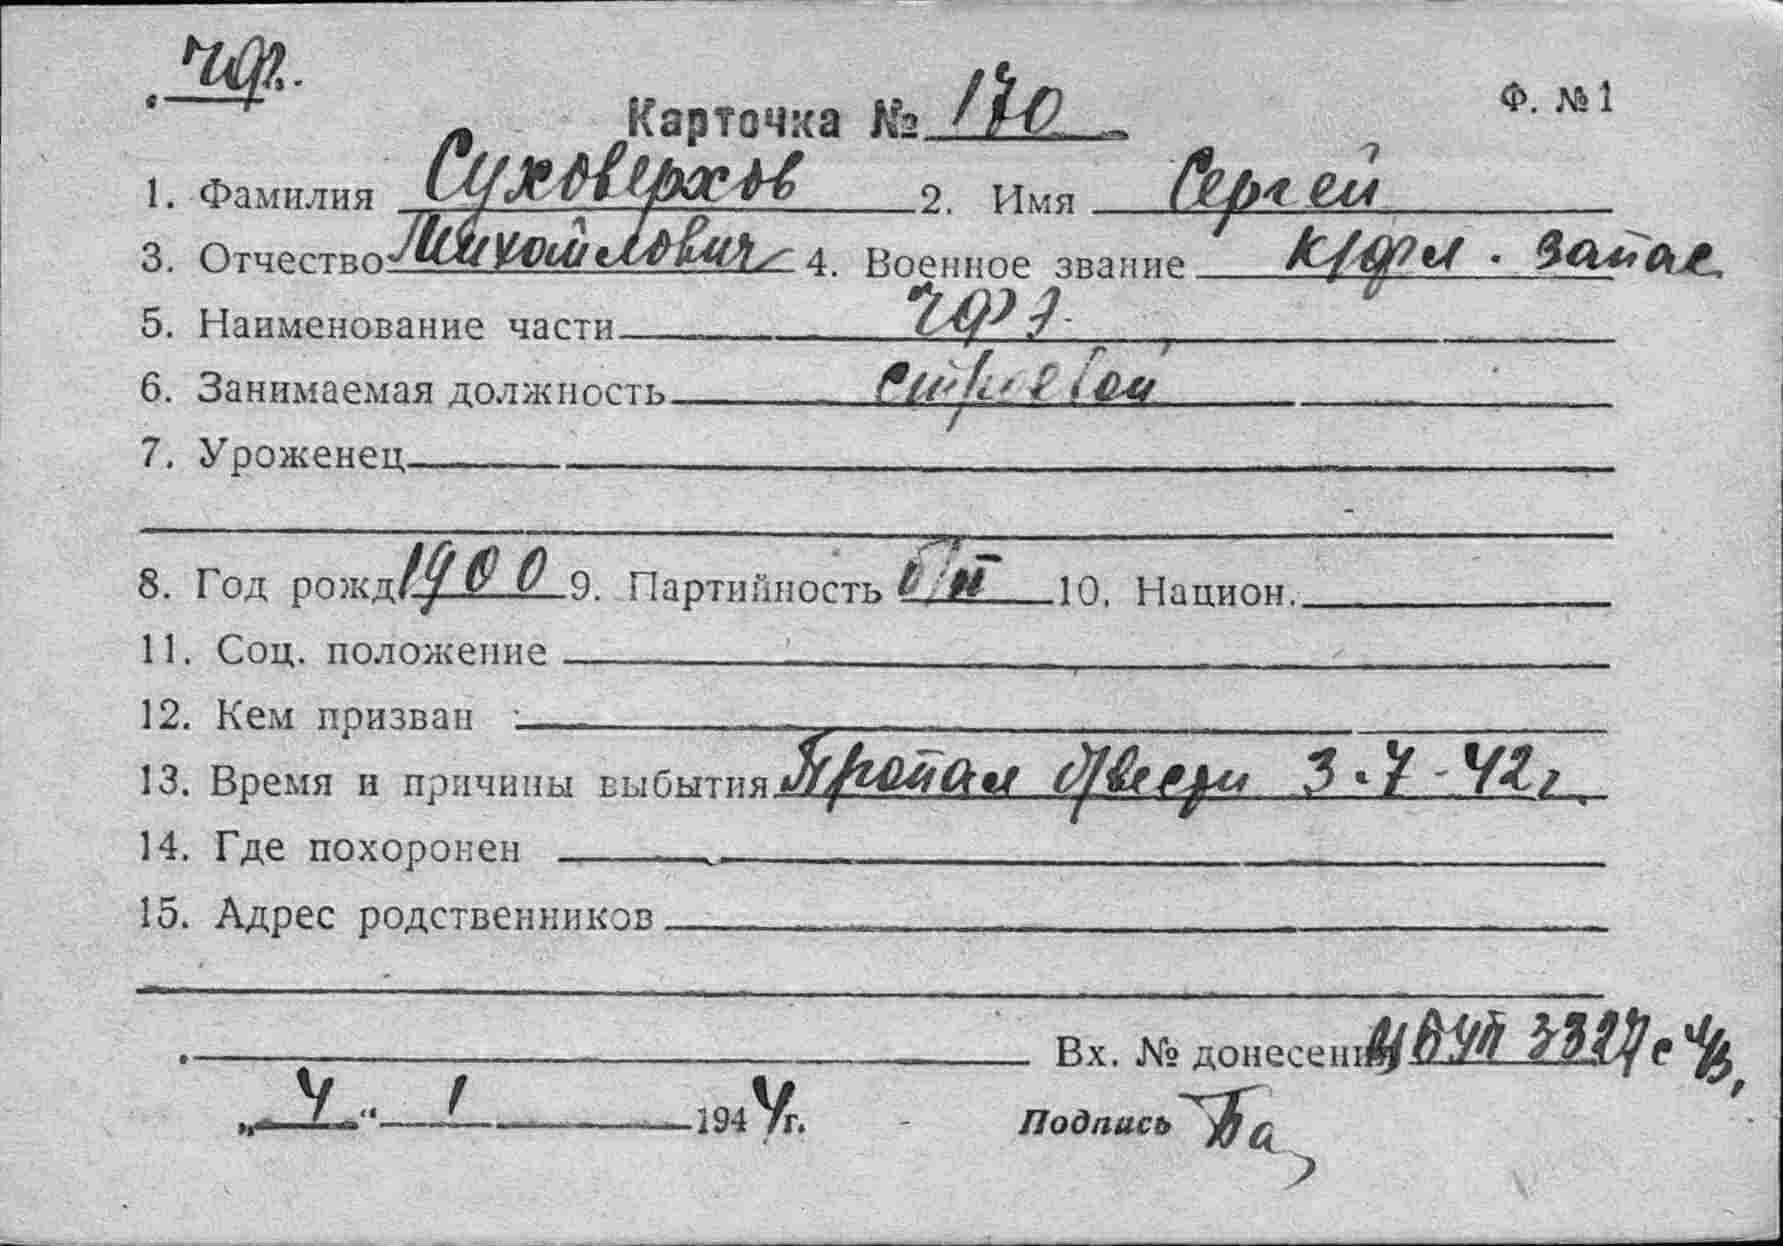 чф.
Ф. №1
Карточка № 170
1. Фамилия Суховерхов 2. Имя Сергей
3. Отчество Михайлович 4. Военное звание к/фл. запас
5. Наименование части ЧФ
6. Занимаемая должность строевой
7. Уроженец
8. Год рожд 1900 9. Партийность б/п 10. Национ.
11. Соц. положение
12. Кем призван
13. Время и причины выбытия Пропал б/вести 3-7-42 г.
14. Где похоронен
15. Адрес родственников
Вх. № донесения 3327с
„4“ 1 1944 г. Подпись